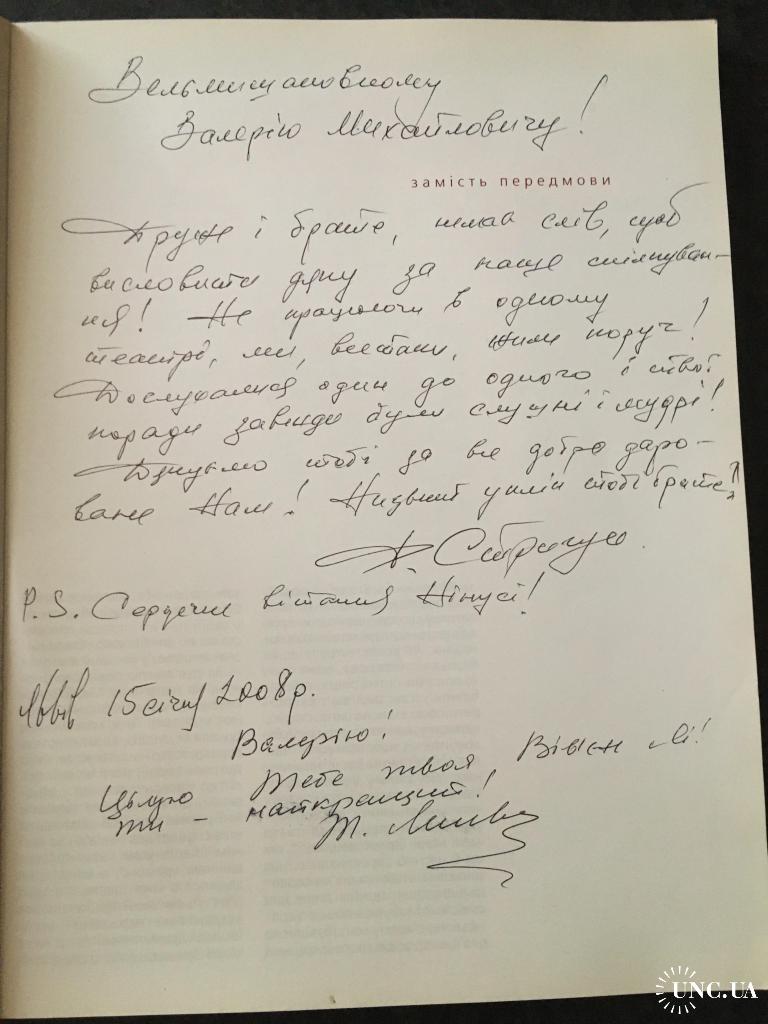 Вельмишановному
Валерію Михайловичу!
замість передмови
Друже і брате, немає слів, щоб
висловити дяку за наше спілкуван-
ня! Не працюючи в одному
театрі, ми, все таки, жили поруч!
Дослухалися один до одного і твої
поради завжди були слушні і мудрі!
Дякуємо тобі за все добре даро-
ване Нам! Низький уклін тобі брате!
Ф. Стригун
P.S. Сердечні вітання Нінусі!
Львів 15 січня 2008 р.
Валерію!
Цілую Тебе твоя Вівієн Лі!
ти - найкращий!
Т. Литв
UNC.UA